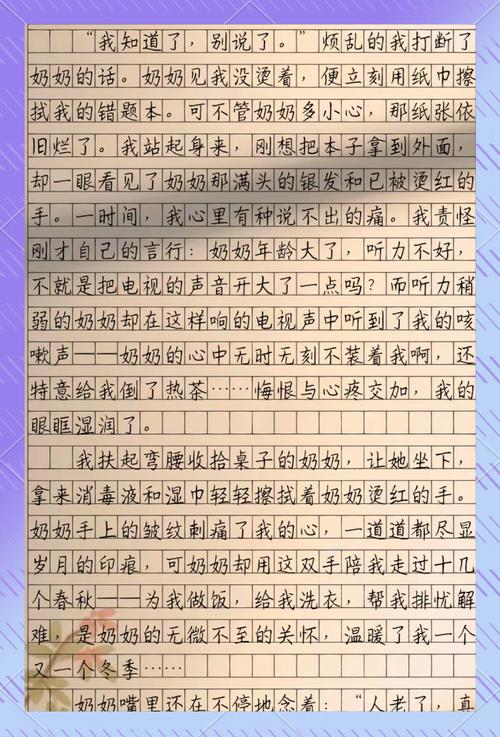 “我知道了，别说了。”烦乱的我打断了
奶奶的话。奶奶见我没烫着，便立刻用纸巾擦
拭我的错题本。可不管奶奶多小心，那纸张依
旧烂了。我站起身来，刚想把本子拿到外面，
却一眼看见了奶奶那满头的银发和已被烫红的
手。一时间，我心里有种说不出的痛。我责怪
刚才自己的言行：奶奶年龄大了，听力不好，
不就是把电视的声音开大了一点吗？而听力稍
弱的奶奶却在这样响的电视声中听到了我的咳
嗽声——奶奶的心中无时无刻不装着我啊，还
特意给我倒了热茶……悔恨与心疼交加，我的
眼眶湿润了。
我扶起弯腰收拾桌子的奶奶，让她坐下，
拿来消毒液和湿巾轻轻擦拭着奶奶烫红的手。
奶奶手上的皱纹刺痛了我的心，一道道都尽显
岁月的印痕，可奶奶却用这双手陪我走过十几
个春秋——为我做饭，给我洗衣，帮我排忧解
难，是奶奶的无微不至的关怀，温暖了我一个
又一个冬季……
奶奶嘴里还在不停地念着：“人老了，真